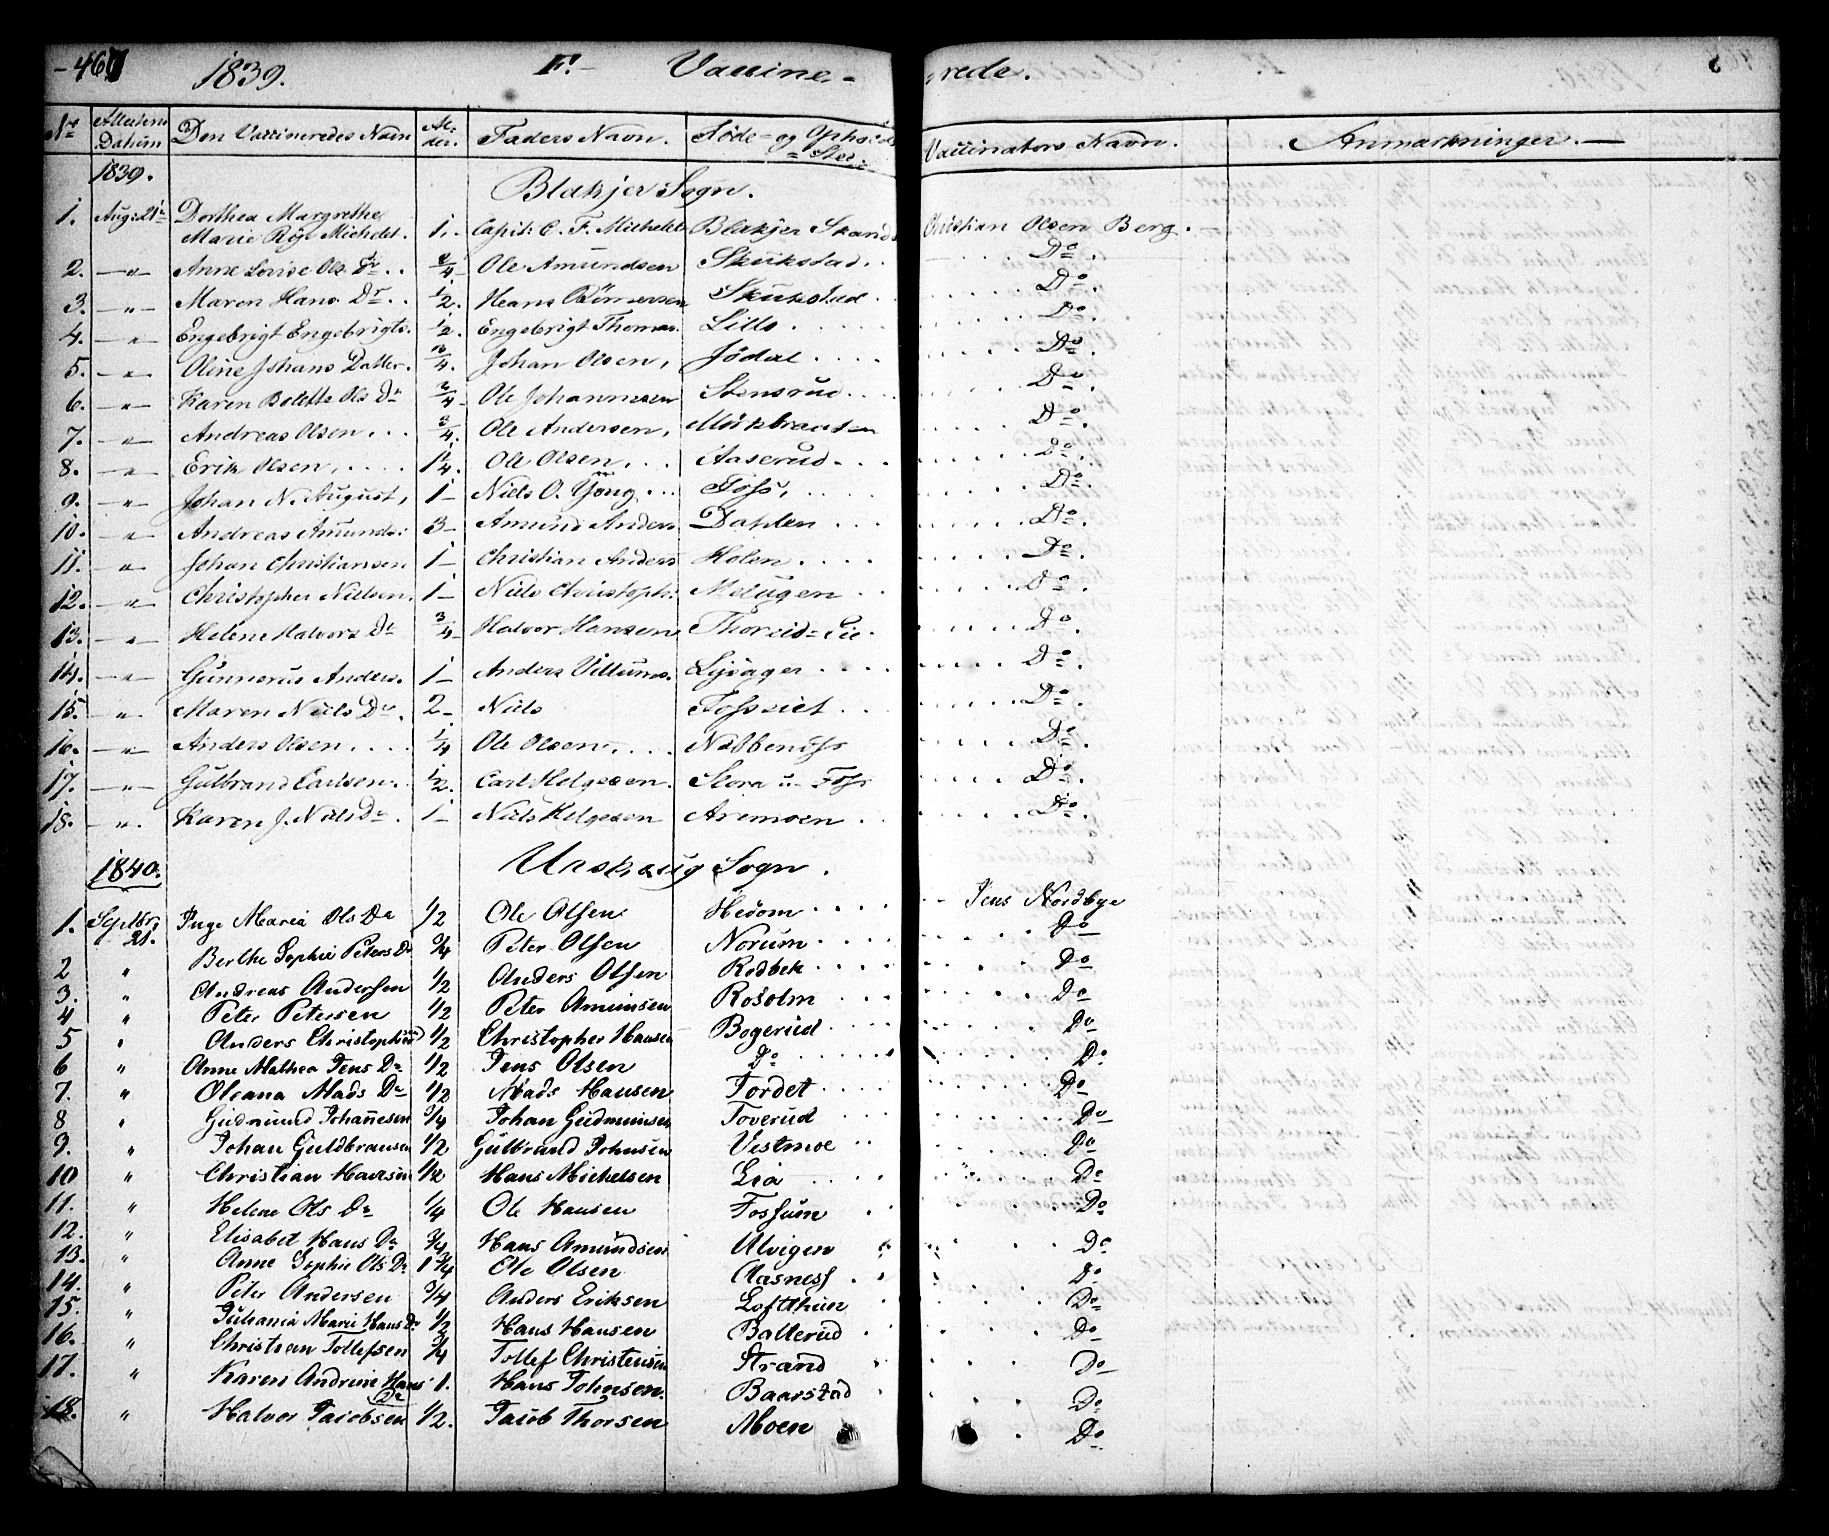 1839. F. Vaccine- rede.
No Attestens Datum Den Vaccineredes Navn Al: der. Faders Navn. Føde- og Opholds Sted. Vaccinators Navn. Anmærkninger.
1839. Blakjer Sogn.
1. Aug: 21 Dorthea Margrethe
Marie Michelet. 1. Capit: C. F. Michelet Blakjer Skands Christian Olsen Berg.
2. —"— Anne Lovise Ols Dr. 3/4 Ole Amundsen Skukstad Do.
3. —"— Maren Hans Dr. 1/2. Hans Skukstad Do.
4. —"— Engebrigt Engebrigts. 1/2. Engebrigt Thomas. Lills Do.
5. —"— Oline Johans Datter. 3/4. Johan Olsen, Jødal Do.
6. —"— Karen Bolette Ols Dr 3/4 Ole Johannesen Stensrud Do.
7. —"— Andreas Olsen 3/4. Ole Andersen, Do.
8. —"— Erik Olsen, 1 1/4. Ole Olsen Aaserud Do.
9. —"— Johan N. August, 1— Niels O. Foss, Do.
10. —"— Andreas Amunds: 3— Amund Anders. Dahlen Do.
11. —"— Johan Christiansen 1— Christian Anders Holen Do.
12. —"— Christopher Nielsen. 1— Niels Christoph: Melugen Do.
13. —"— Helene Halvors Dr 3/4— Halvor Hansen Do.
14. —"— Gunnerus Anders. 1— Anders Villums. Do.
15. —"— Maren Niels Dr. 2— Niels Do.
16. —"— Anders Olsen 1/4 Ole Olsen Do.
17. —"— Gulbrand Carlsen 1/2. Carl Helgesen. Do.
18. —"— Karen J. Niels Dr. 1— Niels Helgesen Aremoen Do.
1840. Urskoug Sogn.
1. Septbr 21. Inge Maria Ols Dr 1/2 Ole Olsen Hedom Jens Nordbye
2 " Berthe Sophie Peters Dr 3/4 Peter Olsen Norum Do
3. " Andreas Andersen 1/2 Anders Olsen Rodbek Do
4 " Peter Petersen 1/2 Peter Amunsen Rosolm Do
5 " Anders Christophersen 1/2 Christopher Hansen Bogerud Do
6 " Anne Mathea Jens Dr 1/2 Jens Olsen Do Do
7. " Oleana Mads Dr 1/2 Mads Hansen Fordet Do
8 " Gudmund Johannesen 3/4 Johan Gudmunsen Toverud Do
9. " Johan Guldbransen 1/2 Gulbrand Johnsen Vestmoe Do
10 " Christian Hansen 1/2 Hans Michelsen Lia Do
11. " Helene Ols Dr 1/4 Ole Hansen Fossum Do
12. " Elisabet Hans Dr 3/4 Hans Amundsen Ulvigen Do
13. " Anne Sophie Ols Dr 1 3/4 Ole Olsen Aasness Do
14. " Peter Andersen 3/4 Anders Eriksen Lofthun Do
15. " Juliania Marie Hans Dr 1/2 Hans Hansen Ballerud Do
16. " Christian Tollefsen 3/4 Tollef Christensen Strand Do
17. " Karen Andrine Hans Dr 1. Hans Johnsen. Baarstad Do
18. " Halvor Jacobsen 1/2. Jacob Thorsen Moen Do